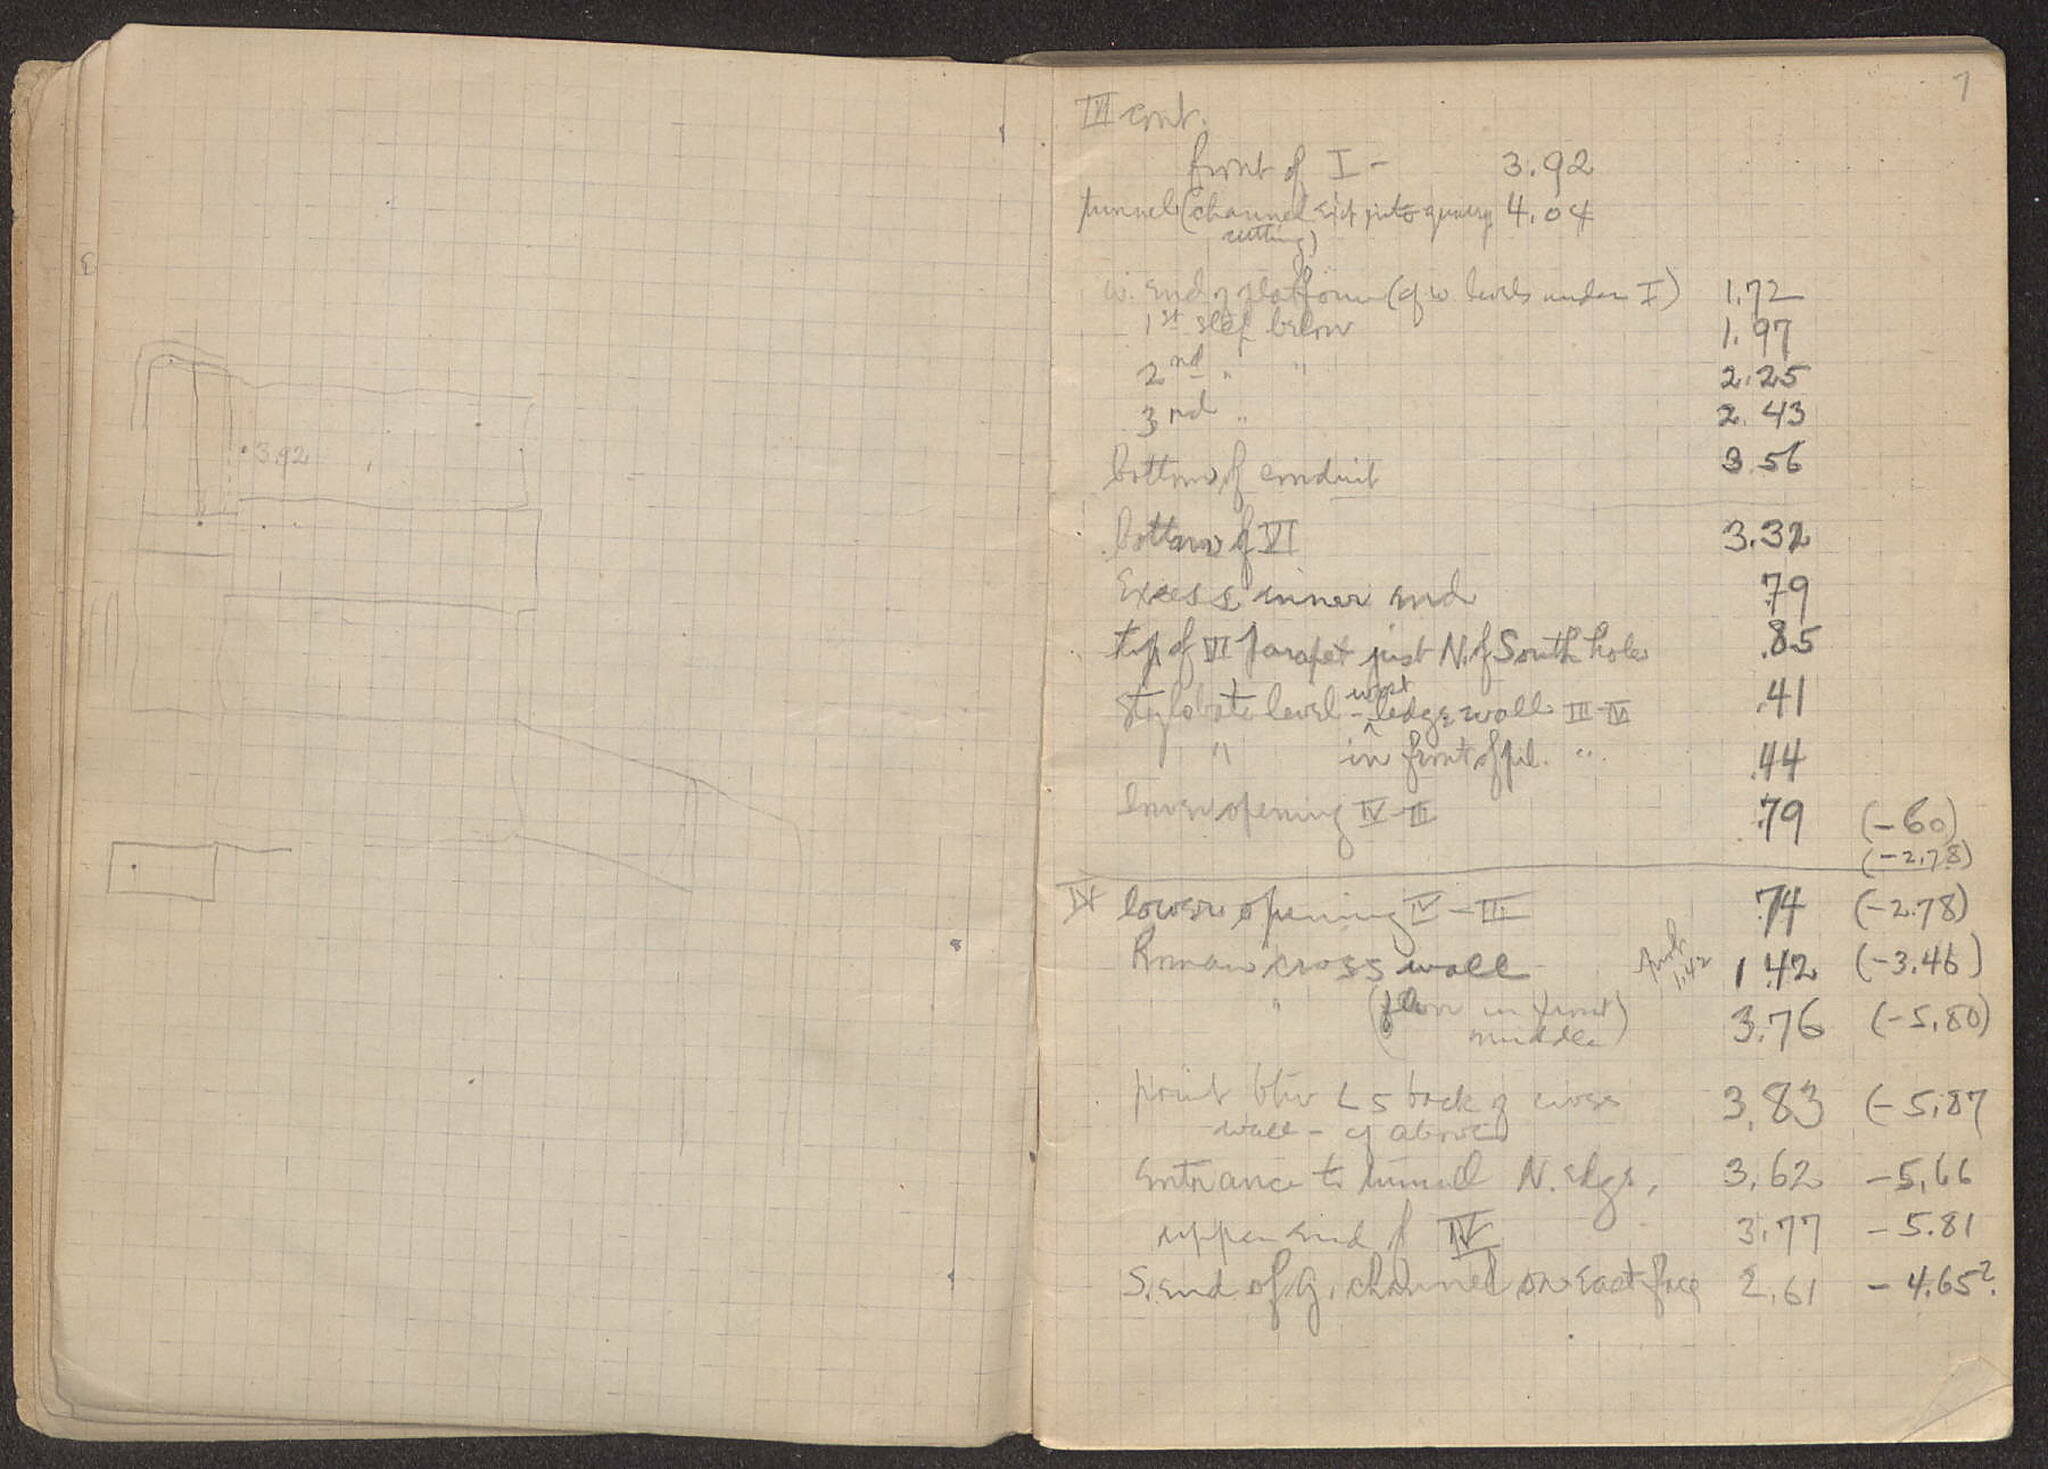 3.92
7
III cont.
front of I - 3.92
tunnel (channel exit into quarry 4.04
cutting)
W. end of platform (cf w levels under I) 1.72
1st step below 1.97
2nd " " 2.25
3rd " 2.43
bottom of conduit 3.56
bottom of VI 3.32
Exees s inner end .79
top of VI parapet just N. of South hole .85
Stylobate level - west ledge wall III-IV .41
" in front of pil. " .44
lower opening IV-III .79 (-60)
(-2.78)
IX lower opening IV-III .74 (-2.78)
Roman cross wall 1.42 (-3.46)
1.42
" (floor in front) 3.76 (-5.80)
middle
point btw Ls back of cross 3.83 (-5.87
wall - cf above
Entrance to tunnel N. edge, 3.62 -5.66
upper end of IV 3.77 -5.81
S. end of g. channel on east face 2.61 -4.65?